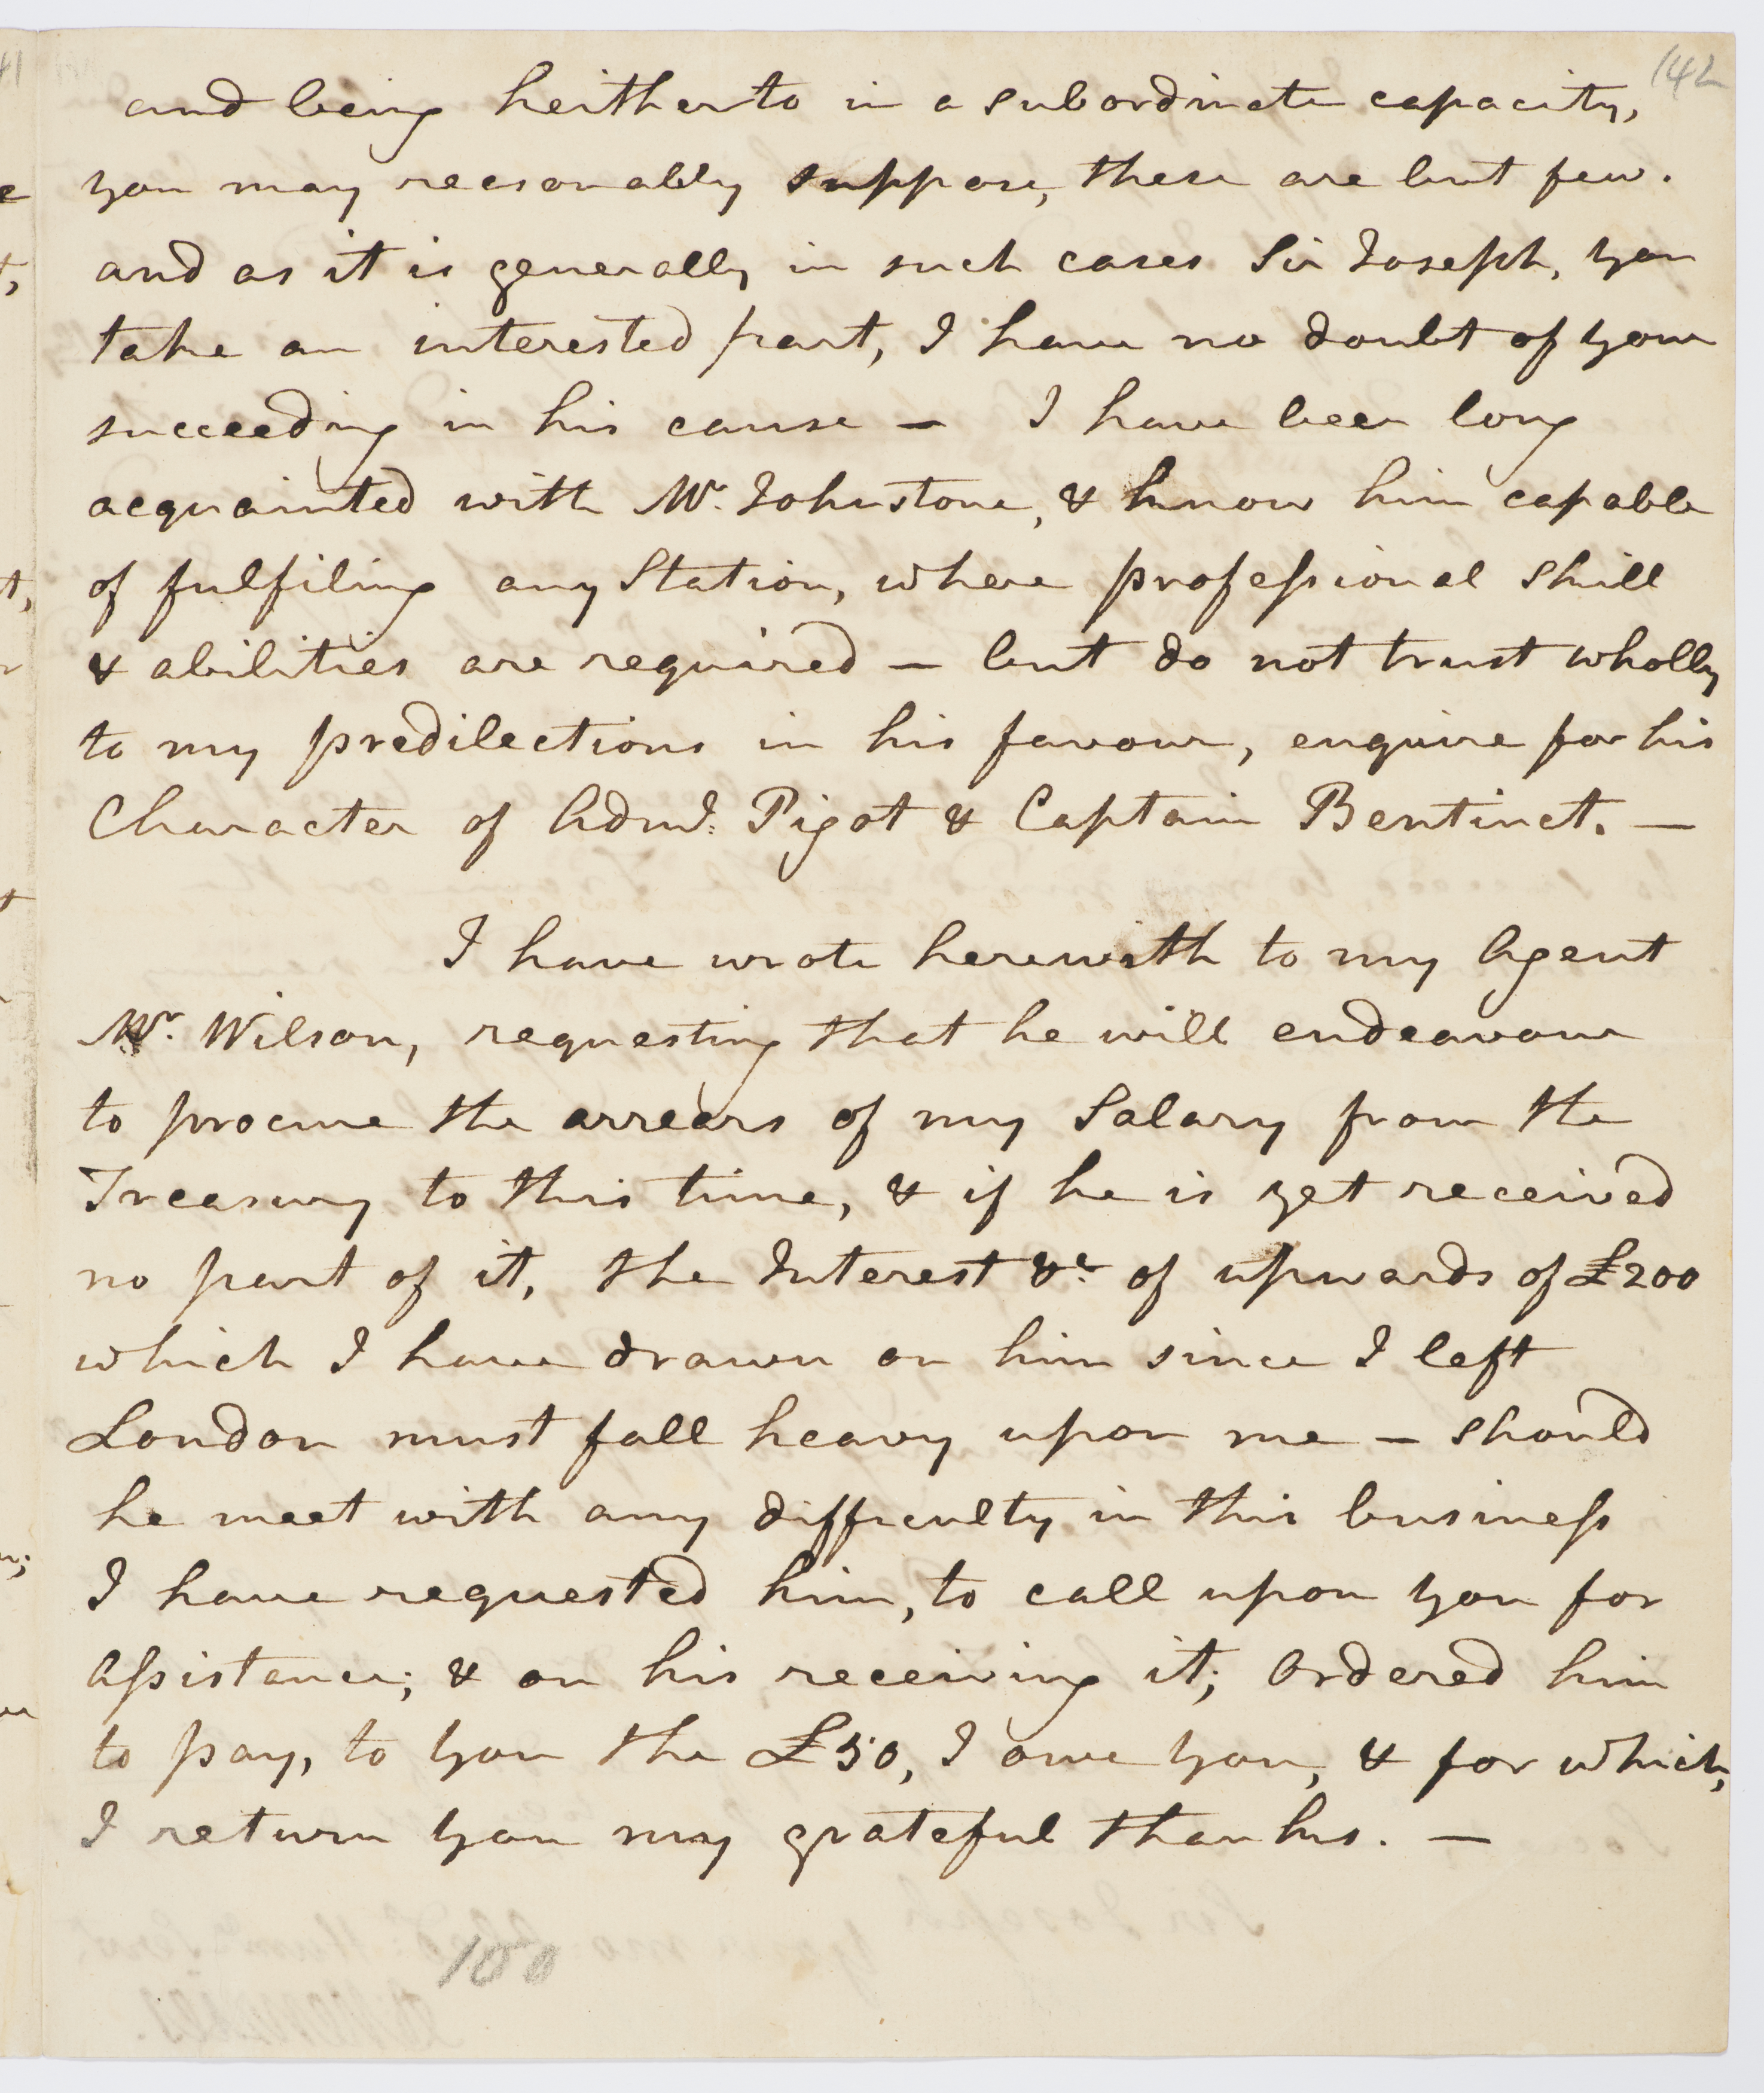 142
and being heitherto in a subordinate capacity,
you may reasonably suppose, these are but few.
and as it is generally in such cases Sir Joseph, you
take an interested part, I have no doubt of your
succeeding in his cause — I have been long
acquainted with Mr. Johnstone, & know him capable
of fulfiling any Station, where profeſsional skill
& abilities are required — but do not trust wholly
to my predilections in his favour, enquire for his
Character of Adml. Pigot & Captain Bentinct. —
I have wrote herewith to my Agent
Mr. Wilson, requesting that he will endeavour
to procure the arrears of my Salary from the
Treasury to this time, & if he is yet received
no part of it, the Interest &c. of upwards of £200
which I have drawn on him since I left
London must fall heavy upon me — should
he meet with any difficulty in this busineſs
I have requested him, to call upon you for
Aſsistance; & on his receiving it; Ordered him
to pay, to you the £50, I owe you, & for which,
I return you my grateful thanks. —